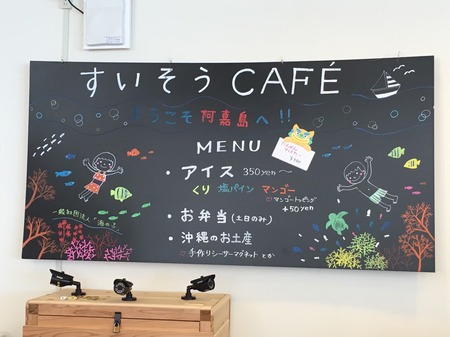 すいそう CAFÉ
ようこそ 阿嘉島へ!!
MENU
・アイス 350yen〜
くり 塩パイン マンゴー
マンゴートッピング
+50yen
・お弁当(土日のみ)
・沖縄のお土産
手作りシーサーマグネット とか
一般社団法人